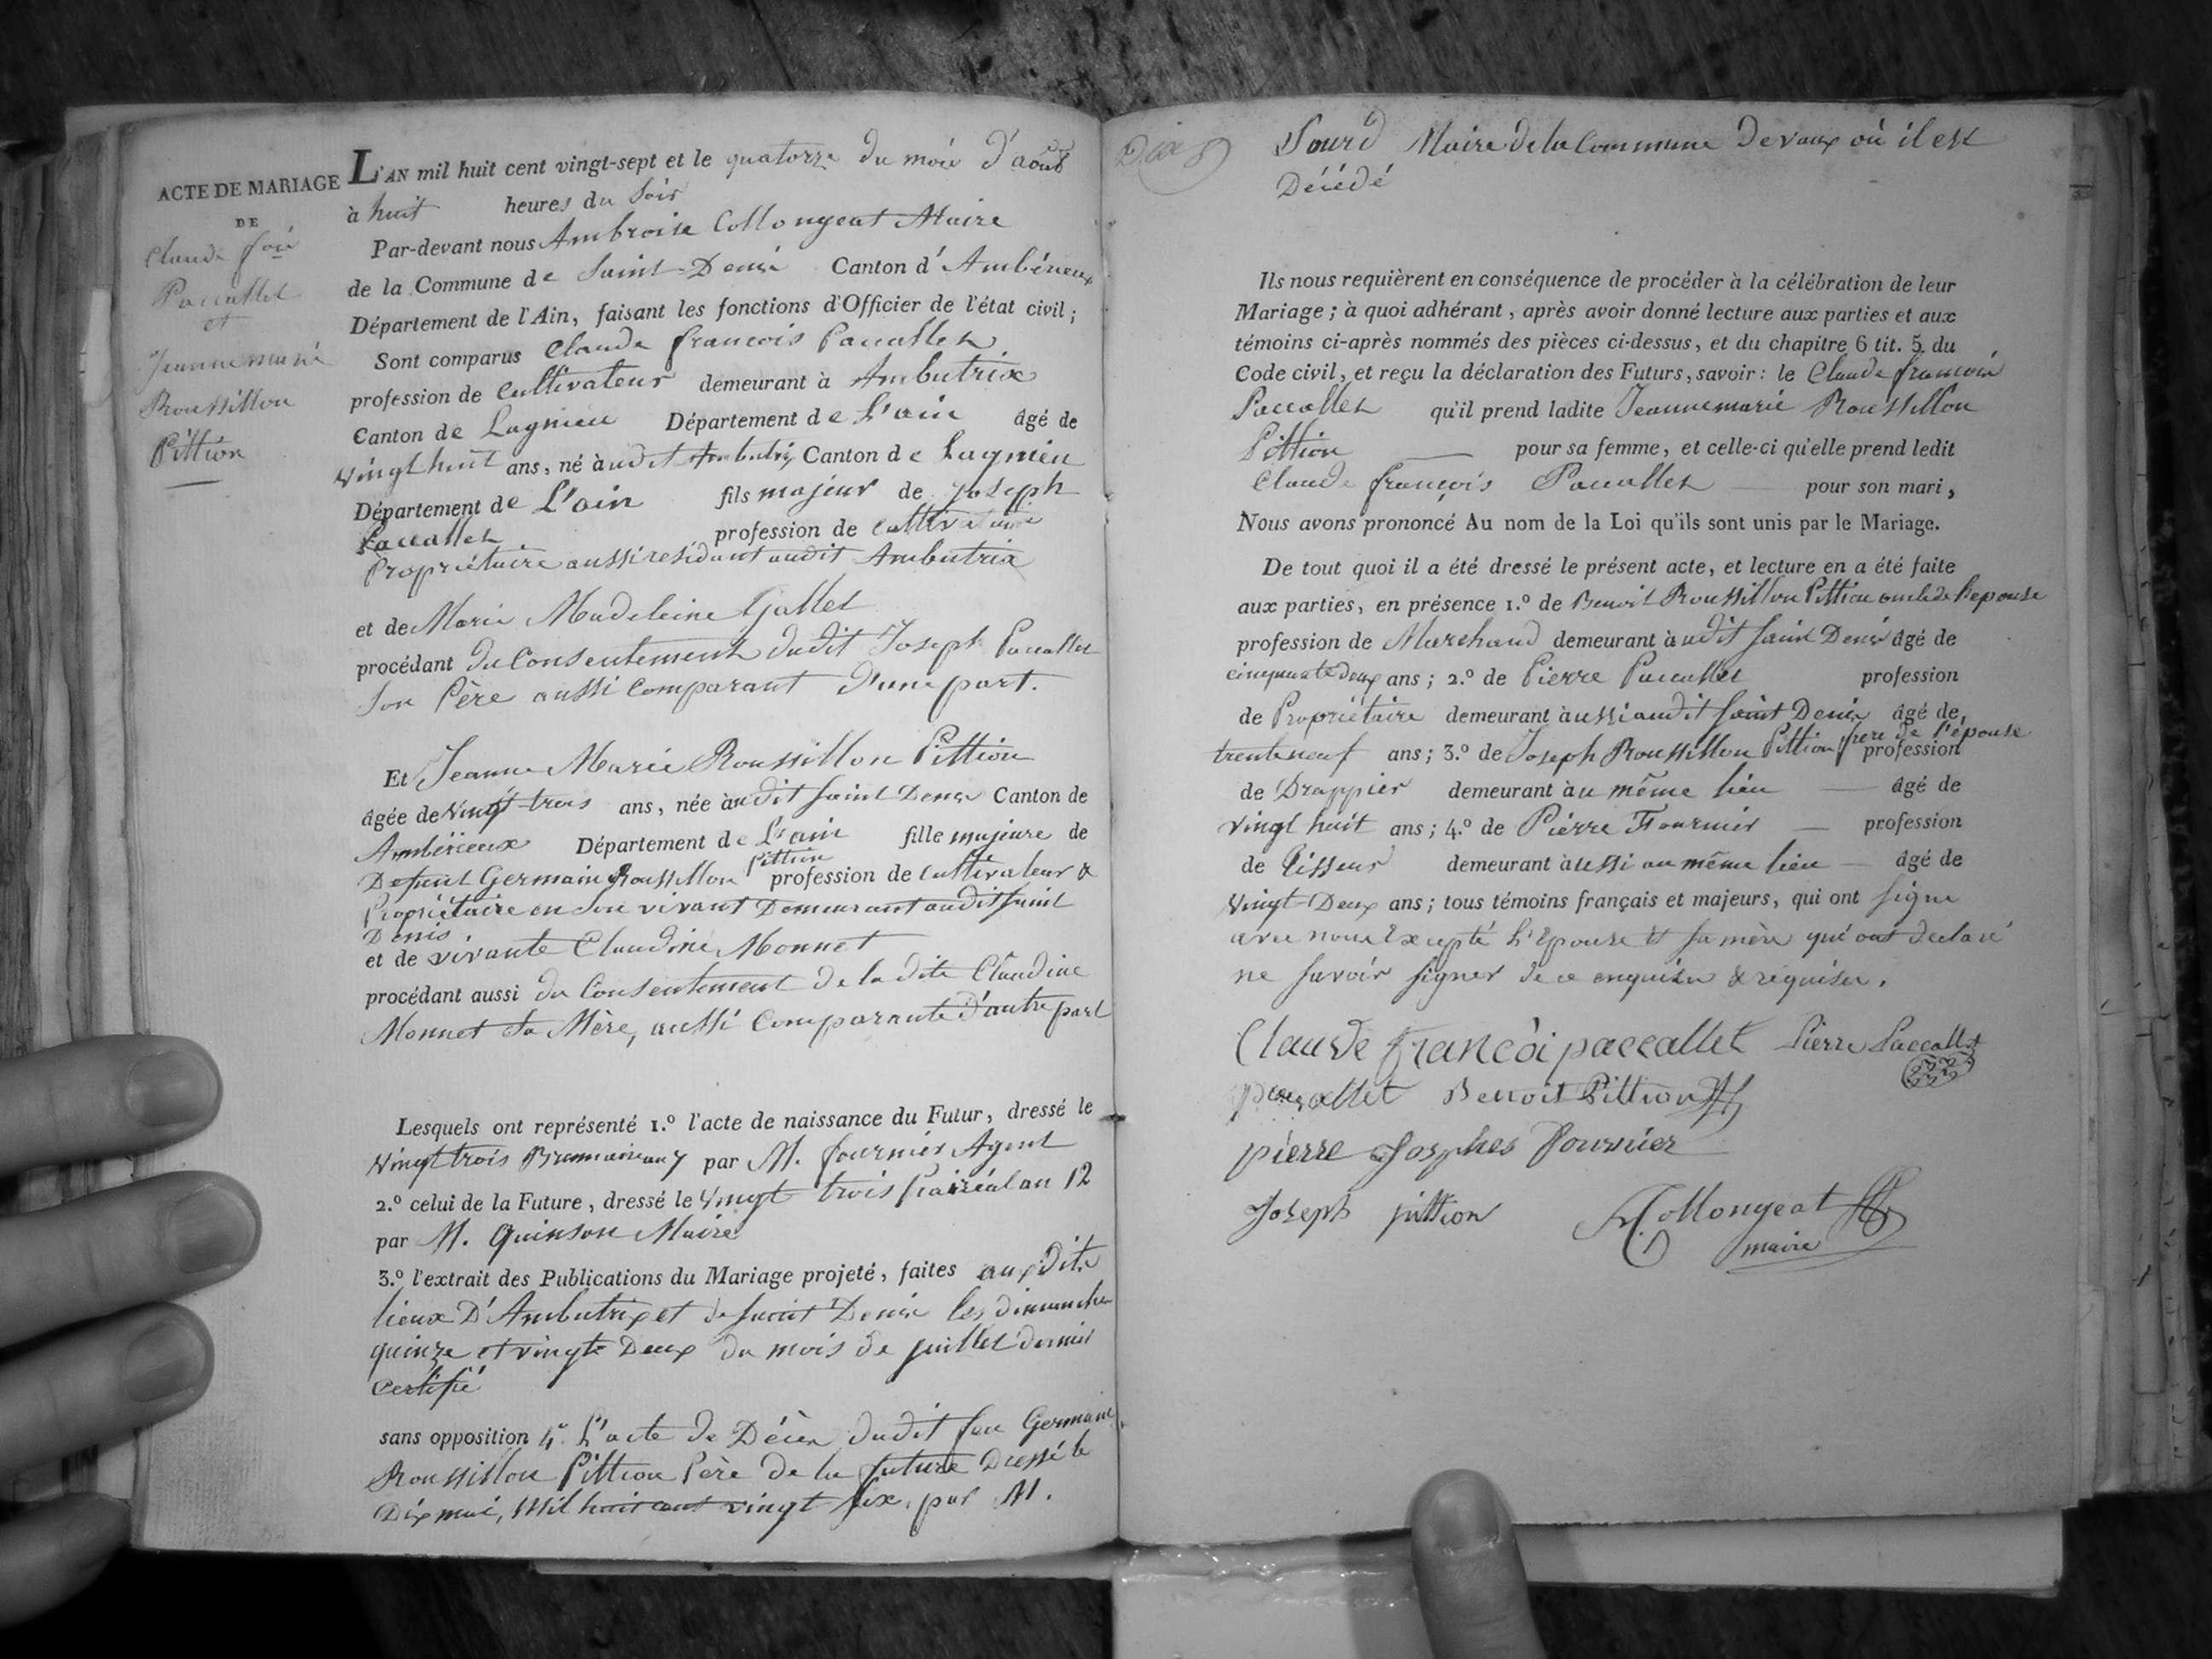 ACTE DE MARIAGE
DE
Claude fois
Paccallet
et
Jeanne marie
Roussillon
Pittion
L'AN mil huit cent vingt-sept et le quatorze du mois d'aout
à huit heures du Soir
Par-devant nous Ambroise Collongeat Maire
de la Commune de Saint-Denis Canton d'Ambérieux
Département de l'Ain, faisant les fonctions d'Officier de l'état civil ;
Sont comparus Claude françois Paccallet
profession de Cultivateur demeurant à Ambutrix
Canton de Lagnieu Département de L'ain âgé de
vingt huit ans, né àudit Ambutrix Canton de Lagnieu
Département de L'ain fils majeur de Joseph
Paccallet profession de
Propriétaire aussi residant audit Ambutrix
et de Marie Madeleine Gallet
procédant du Consentement dudit Joseph Paccallet
Son Père aussi comparant d'une part.
Et Jeanne Marie Roussillon Pittion
âgée de Vingt-trois ans, née àudit Saint Denis Canton de
Ambérieux Département de L'ain fille majeure de
Defunt Germain Roussillon Pittion profession de Cultivateur &
Propriétaire en son vivant Demeurant audit Saint
Denis
et de vivante Claudine Monnet
procédant aussi du Consentement de la dite Claudine
Monnet Sa Mère, aussi Comparante d'autre part
Lesquels ont représenté 1.º l'acte de naissance du Futur, dressé le
Vingt trois Brumaire an 7 par M. fournier Agent
2.º celui de la Future, dressé le Vingt trois Prairéal an 12
par M. Quinson Maire
3.º l'extrait des Publications du Mariage projeté, faites auxdits
lieux D'Ambutrix et de Saint Denis les dimanches
quinze et vingt Deux du mois de juillet dernier
Certifié
sans opposition 4º L'acte de Décès dudit feu Germain
Roussillon Pittion Père de la future Dressé le
Dix mai, Mil huit cent vingt six, par M.
Dix
Sourd Maire de la Commune De vaux où il est
Décédé
Ils nous requièrent en conséquence de procéder à la célébration de leur
Mariage ; à quoi adhérant, après avoir donné lecture aux parties et aux
témoins ci-après nommés des pièces ci-dessus, et du chapitre 6 tit. 5. du
Code civil, et reçu la déclaration des Futurs, savoir : le Claude françois
Paccallet qu'il prend ladite Jeanne marie Roussillon
Pittion pour sa femme, et celle-ci qu'elle prend ledit
Claude françois Paccallet pour son mari,
Nous avons prononcé Au nom de la Loi qu'ils sont unis par le Mariage.
De tout quoi il a été dressé le présent acte, et lecture en a été faite
aux parties, en présence 1.º de Benoit Roussillon Pittion oncle de l'epouse
profession de Marchand demeurant àudit Saint Denis âgé de
cinquante deux ans ; 2.º de Pierre Paccallet profession
de Propriétaire demeurant àussi audit Saint Denis âgé de
trente neuf ans ; 3.º de Joseph Roussillon Pittion frere de l'épouse profession
de Drappier demeurant àu même lieu âgé de
vingt huit ans ; 4.º de Pierre Fournier profession
de Tisseur demeurant àussi au même lieu âgé de
Vingt-Deux ans ; tous témoins français et majeurs, qui ont signé
avec nous Excepté L'Epouse et sa mère qui ont declaré
ne savoir signer de ce enquises & requises.
Claude françoi paccallet Pierre Paccallet
paccallet Benoit Pittion
pierre Josphes fournier
Joseph pittion A. Collongeat
maire